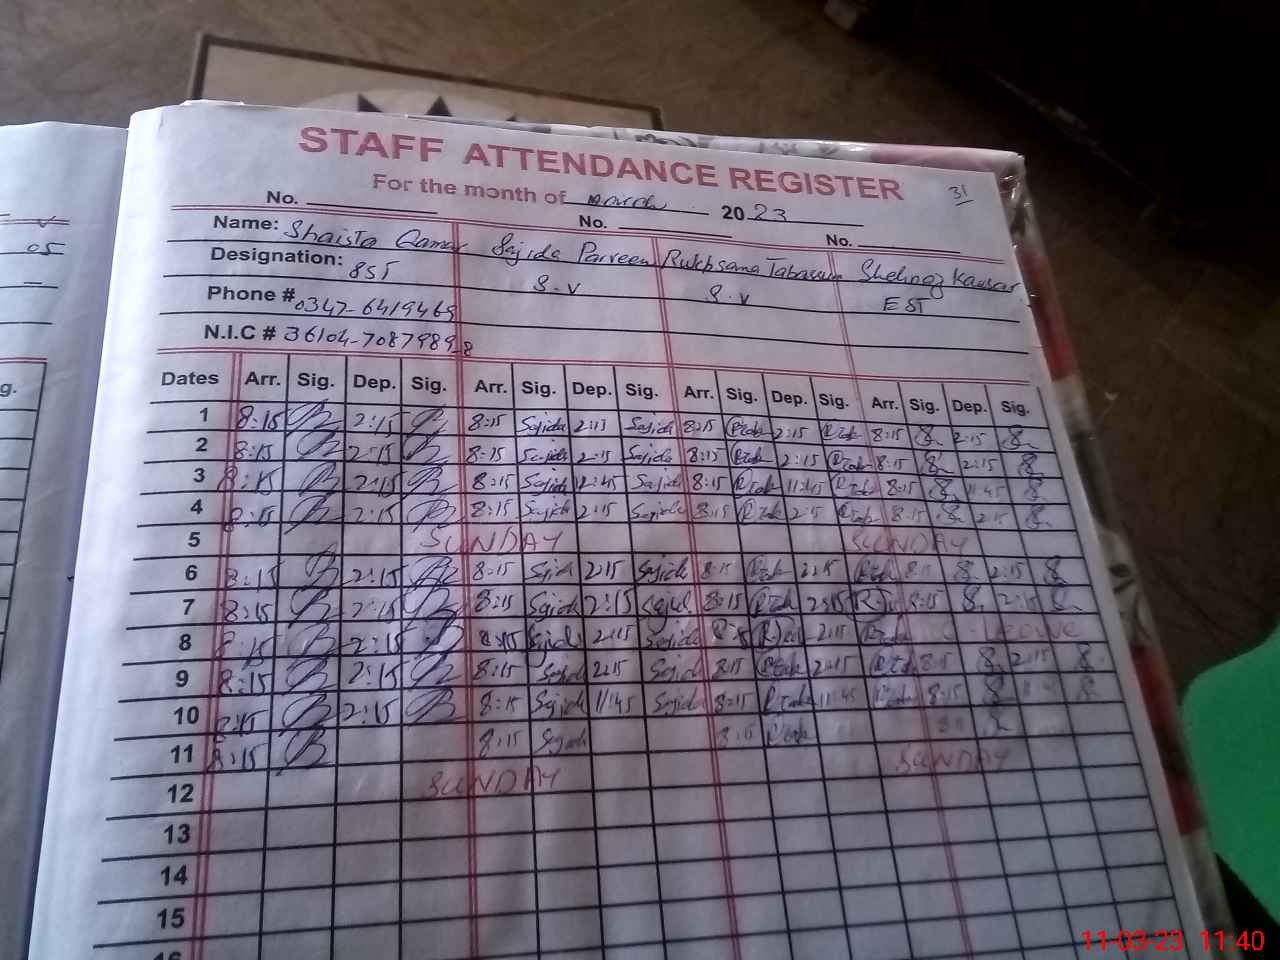 STAFF ATTENDANCE REGISTER
31
For the month of March 2023
No. No. No.
Name: Shaista Qamar Sajida Parveen Rukhsana Tabassum Shehnaz Kausar
Designation: SST S.V S.V EST
Phone # 0347-6419469
N.I.C # 36104-7087989-8
Dates Arr. Sig. Dep. Sig. Arr. Sig. Dep. Sig. Arr. Sig. Dep. Sig. Arr. Sig. Dep. Sig.
1 8:15 2:15 8:15 Sajida 2:15 Sajida 8:15 RTab 2:15 RTab 8:15 2:15
2 8:15 2:15 8:15 Sajida 2:15 Sajida 8:15 RTab 2:15 RTab 8:15 2:15
3 8:15 2:15 8:15 Sajida 11:45 Sajida 8:15 RTab 11:45 RTab 8:15 11:45
4 8:15 2:15 8:15 Sajida 2:15 Sajida 8:15 RTab 2:15 RTab 8:15 2:15
5 SUNDAY SUNDAY
6 8:15 2:15 8:15 Sajida 2:15 Sajida 8:15 RTab 2:15 RTab 8:15 2:15
7 8:15 2:15 8:15 Sajida 2:15 Sajida 8:15 RTab 2:15 8:15 2:15
8 8:15 2:15 8:15 Sajida 2:15 Sajida 8:15 2:15 RTab C-Leave
9 8:15 2:15 8:15 Sajida 2:15 Sajida 8:15 RTab 2:15 RTab 8:15 2:15
10 8:15 2:15 8:15 Sajida 11:45 Sajida 8:15 RTab 11:45 RTab 8:15 11:45
11 8:15 8:15 Sajida 8:15 RTab 8:15
12 SUNDAY SUNDAY
13
14
15
16
05
g.
11-03-23 11:40